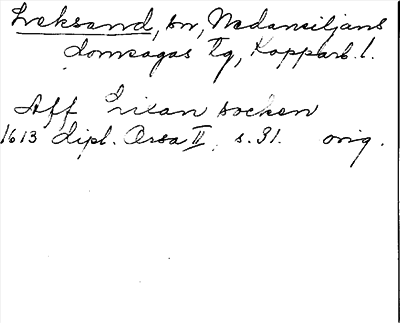 Leksand, sn, Nedansiljans
domsagas tg, Kopparb. l.
Aff Lixan socken
1613 dipl. Orsa II, s. 91. orig.